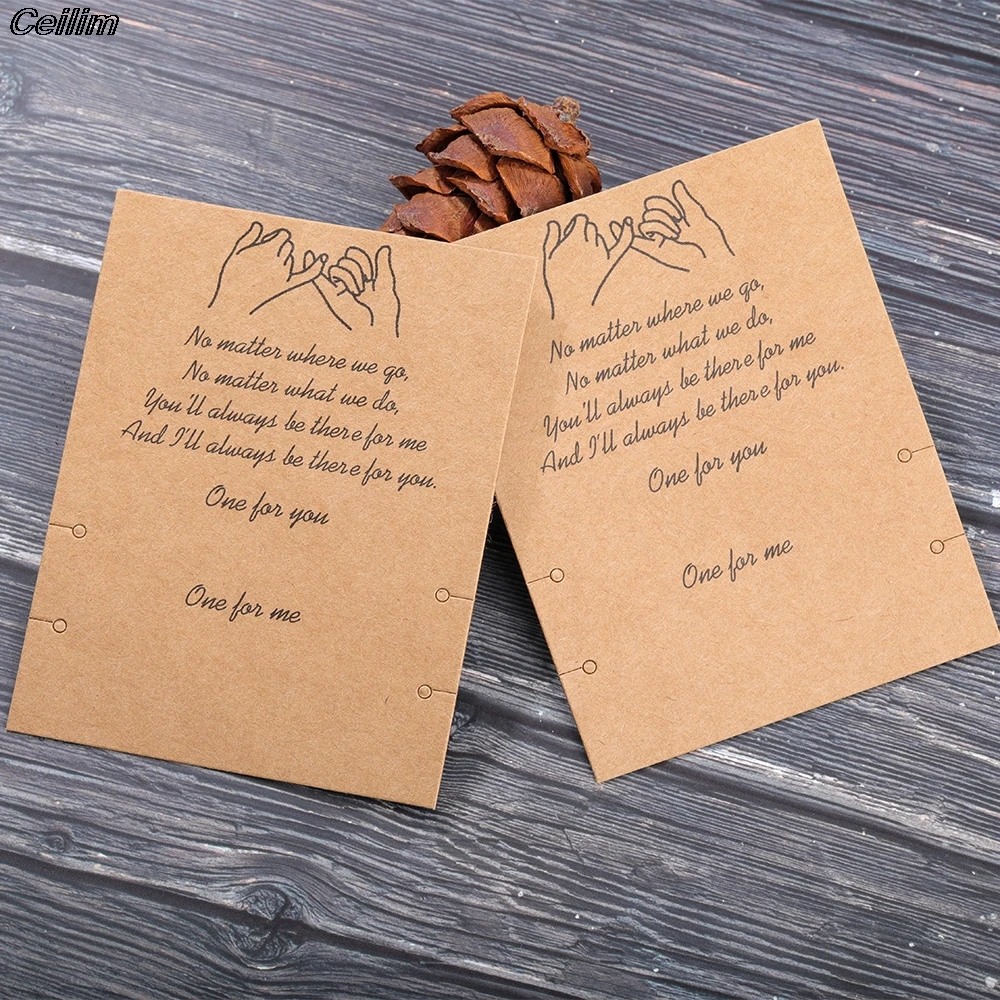 Ceilim
No matter where we go,
No matter what we do,
You'll always be there for me
And I'll always be there for you.
One for you
One for me
No matter where we go,
No matter what we do,
You'll always be there for me
And I'll always be there for you.
One for you
One for me